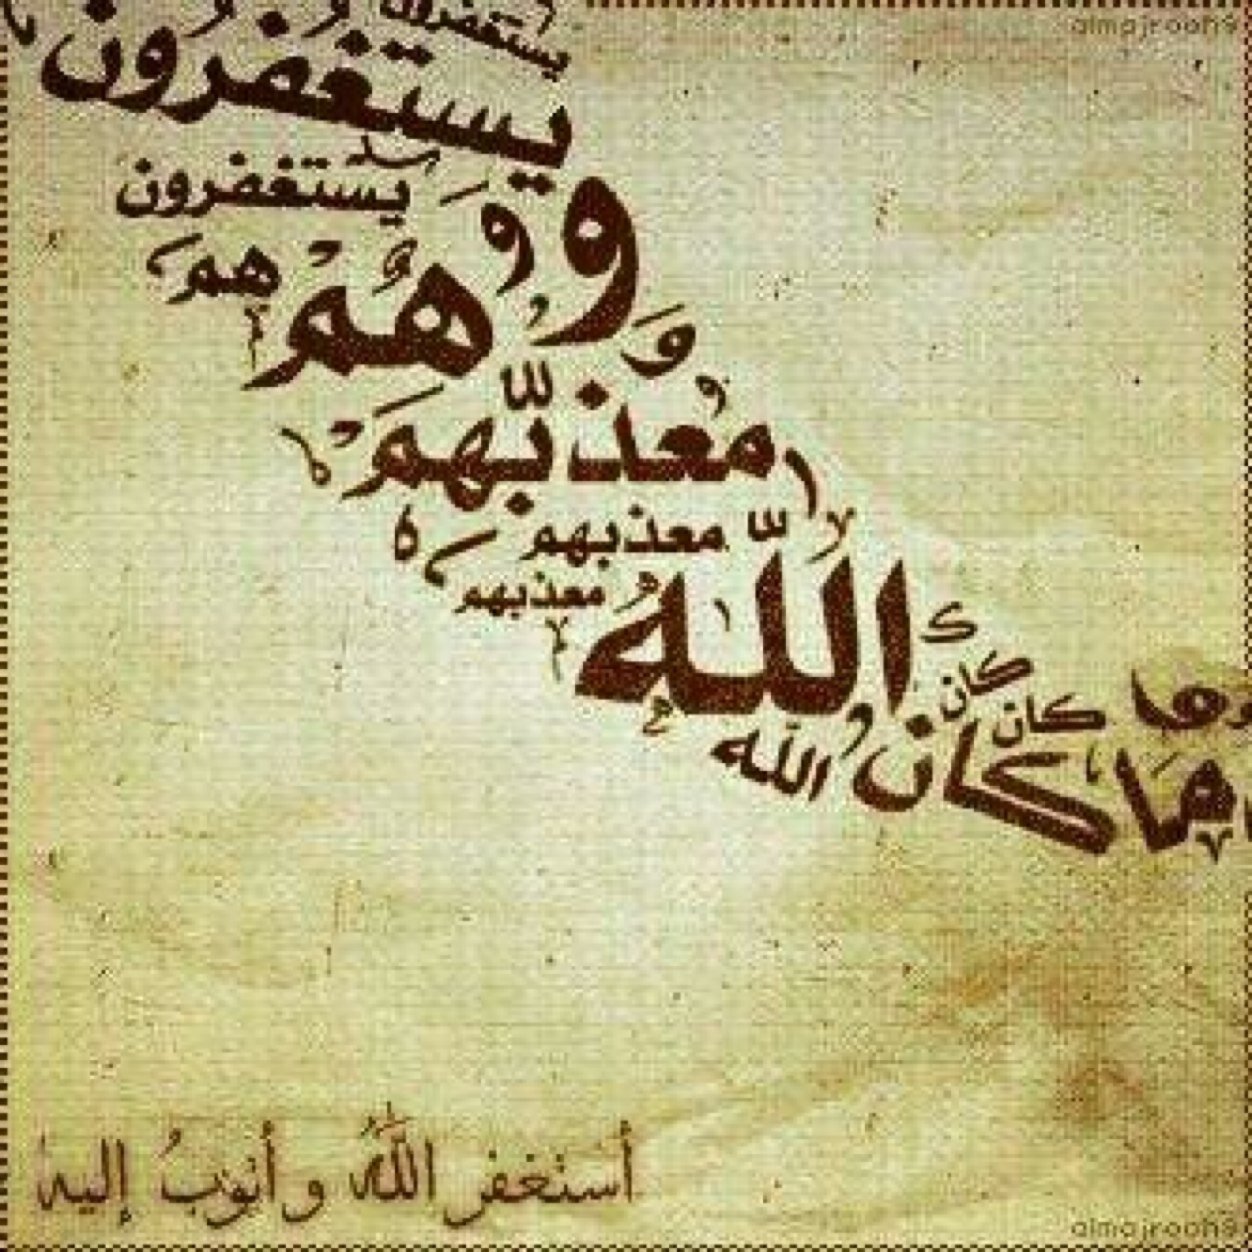 almajrooh9
يستغفرون
يستغفرون
يستغفرون
و
و
و
هُمْ
هم
مُعَذِّبَهُمْ
معذبهم
معذبهم
اللَّهُ
الله
كان
كان
وما
مَا كَانَ
أستغفر اللهَ وأتوبُ إليه
almajrooh9